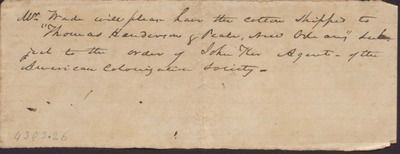 Mr. Wade will please have the cotton shipped to
"Thomas Henderson & Peale, New Orleans" sub-
ject to the order of John Ker Agent- of the
American Colonization Society-
4383.26